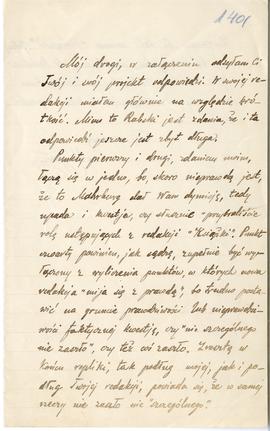 1401
Mój drogi, w załączeniu odsyłam Ci
Twój i swój projekt odpowiedzi. W swojej re-
dakcji miałem głównie na względzie krót-
kość. Mimo to Rabski jest zdania, że i ta
odpowiedź jeszcze jest zbyt długa.
Punkty pierwszy i drugi, zdaniem moim,
łączą się w jedno, bo, skoro nieprawdą jest,
że to Mahrburg dał Wam dymisję, tedy
upada i kwestja, czy słusznie "przybraliście
rolę ustępujących z redakcji "Książki". Punkt
czwarty powinien, jak sądzę, zupełnie być wy-
łączony z wyliczenia punktów, w których nowa
redakcja "mija się z prawdą", bo trudno posta-
wić na gruncie prawdziwości lub nieprawdzi-
wości faktycznej kwestję, czy "nic szczególnego
nie zaszło", czy też coś zaszło. Zresztą w
końcu repliki, tak podług mojej, jak i po-
dług Twojej redakcji, powiada się, że w samej
rzeczy nie zaszło nic "szczególnego".